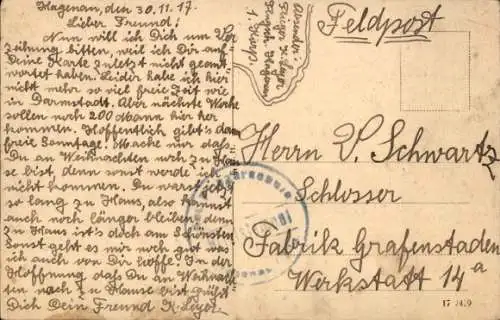 Hagenau, den 30.11.17.
Lieber Freund!
Nun will ich Dich um Ver-
zeihung bitten, weil ich Dir auf
Deine Karte zuletzt nicht geant-
wortet haben. Leider habe ich hier
nicht mehr so viel freie Zeit wie
in Darmstadt. Aber nächste Woche
sollen noch 200 Mann hier her
kommen. Hoffentlich gibt's dann
freie Sonntage. Mache nur das
Du an Weihnachten noch zu Hau-
se bist, denn sonst werde ich
nicht kommen. Du warst schon
so lang zu Haus, also kannst
auch noch länger bleiben, denn
zu Haus ist's doch am Schönsten
Sonst geht es mir noch gut was
ich auch von Dir hoffe. In der
Hoffnung daß Du an Weihnach-
ten noch zu Hause bist grüßt
Dich Dein Freund K.
Absender:
Hagenau
Feldpost
Herrn V. Schwartz
Schlosser
Fabrik Grafenstaden
Werkstatt 14a
17 24.9